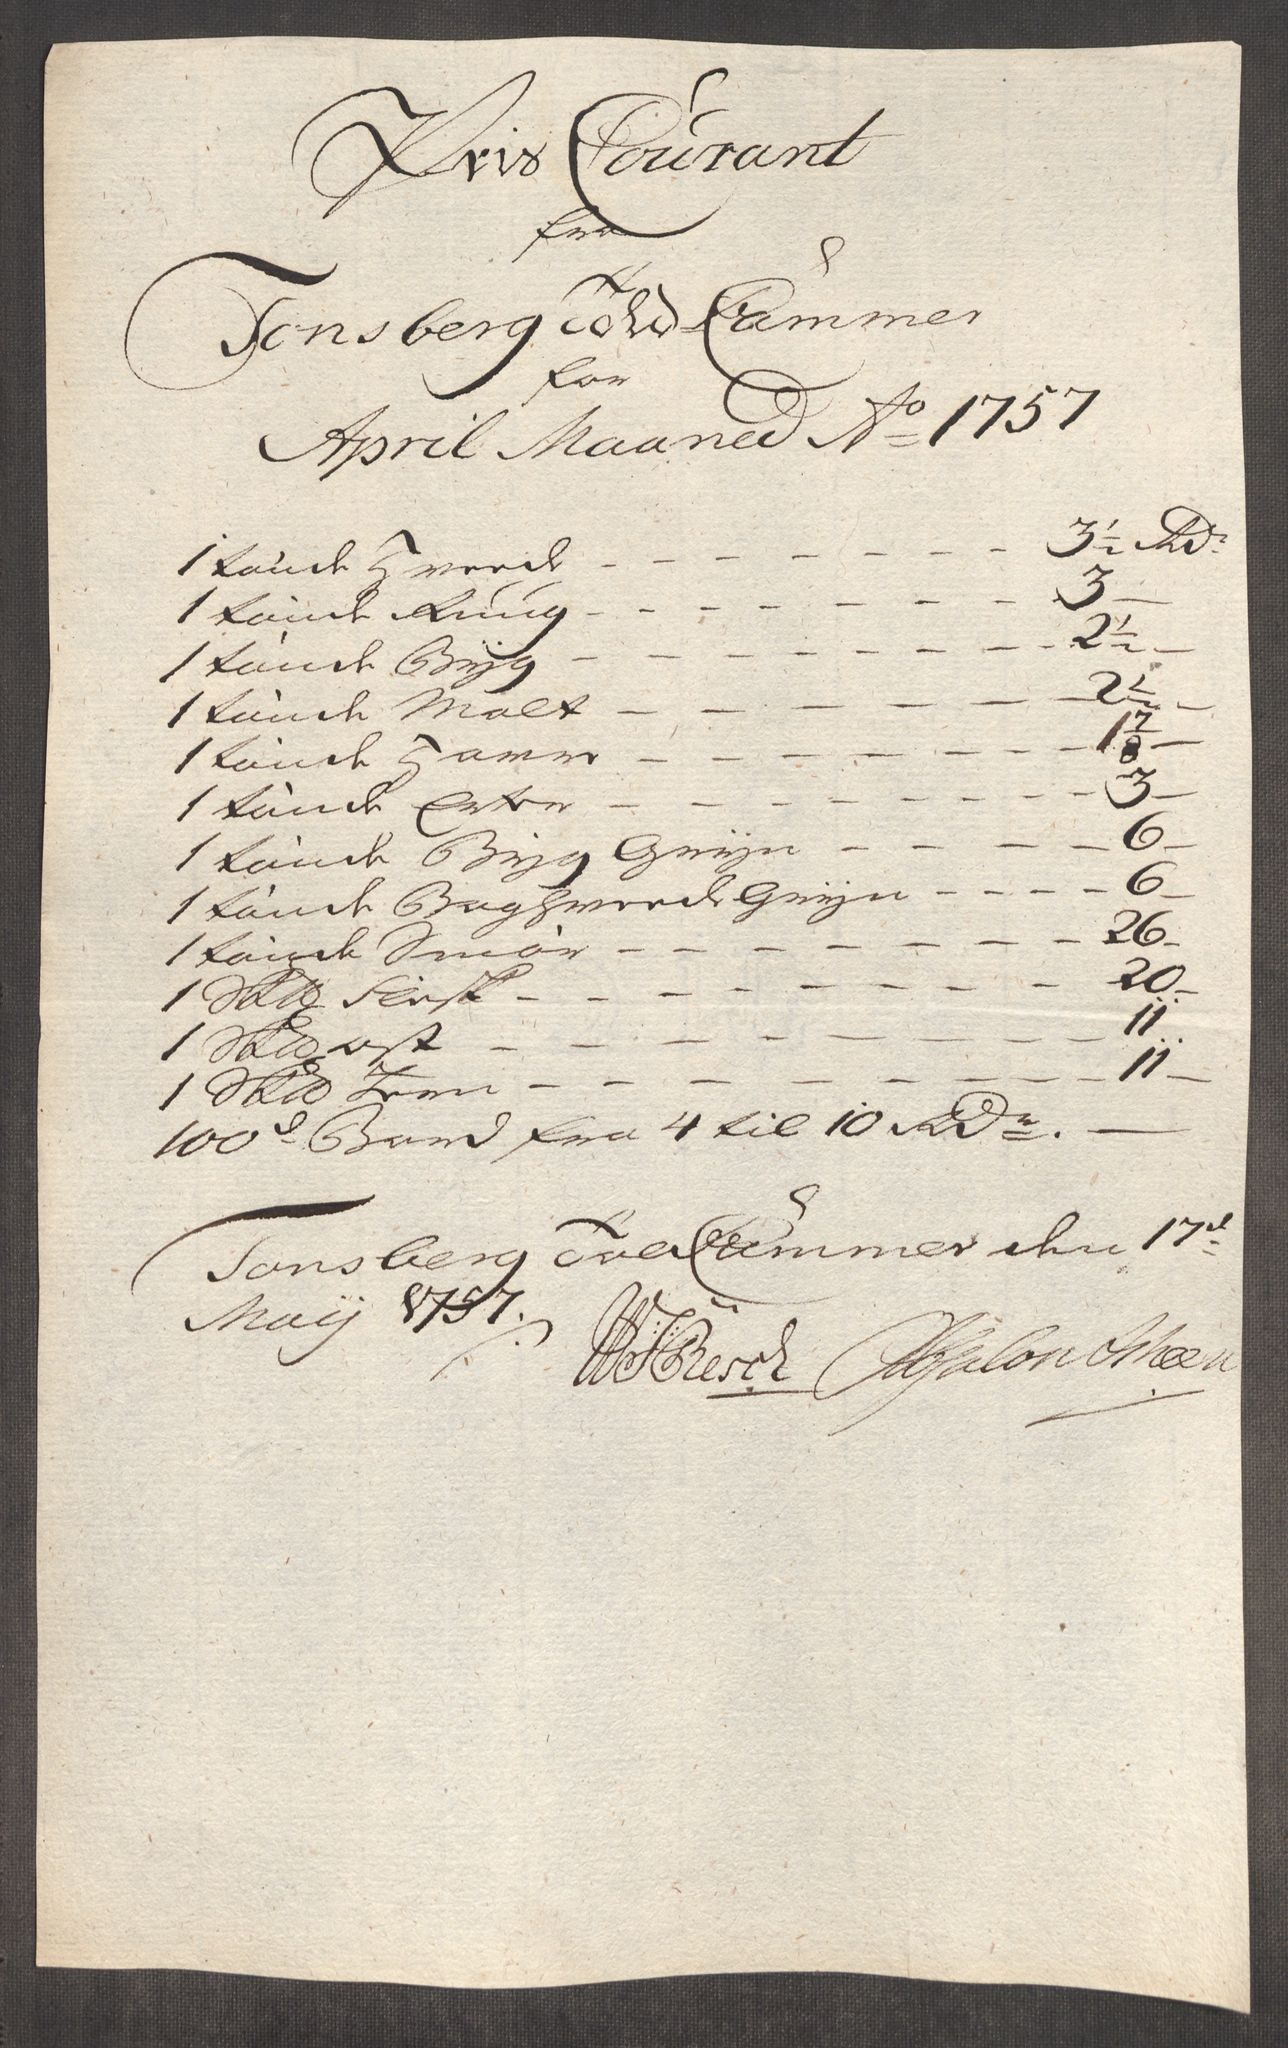 Pris Courant
fra
Tonsberg Told Cammer
for
April Maaned Ao 1757
1 tønde Hvede - - - - - - - 3 1/2 Rdr
1 tønde Rug - - - - - - - - 3 -
1 tønde Byg - - - - - - - - 2 1/2 -
1 tønde Malt - - - - - - - 2 1/2 -
1 tønde Haver - - - - - - - 1 7/8 -
1 tønde Erter - - - - - - - 3 -
1 tønde Byg Gryn - - - - - 6 -
1 tønde Boghvede Gryn - - - - 6 -
1 tønde Smør - - - - - - - 26 -
1 Sk℔ Flesk - - - - - - - 20 -
1 Sk℔ ost - - - - - - - - 11
1 Sk℔ Jern - - - - - - - - 11 -
100d Bord fra 4 til 10 Rdr. —
Tonsberg Told Cammer den 17d
Maij 1757.
Resch